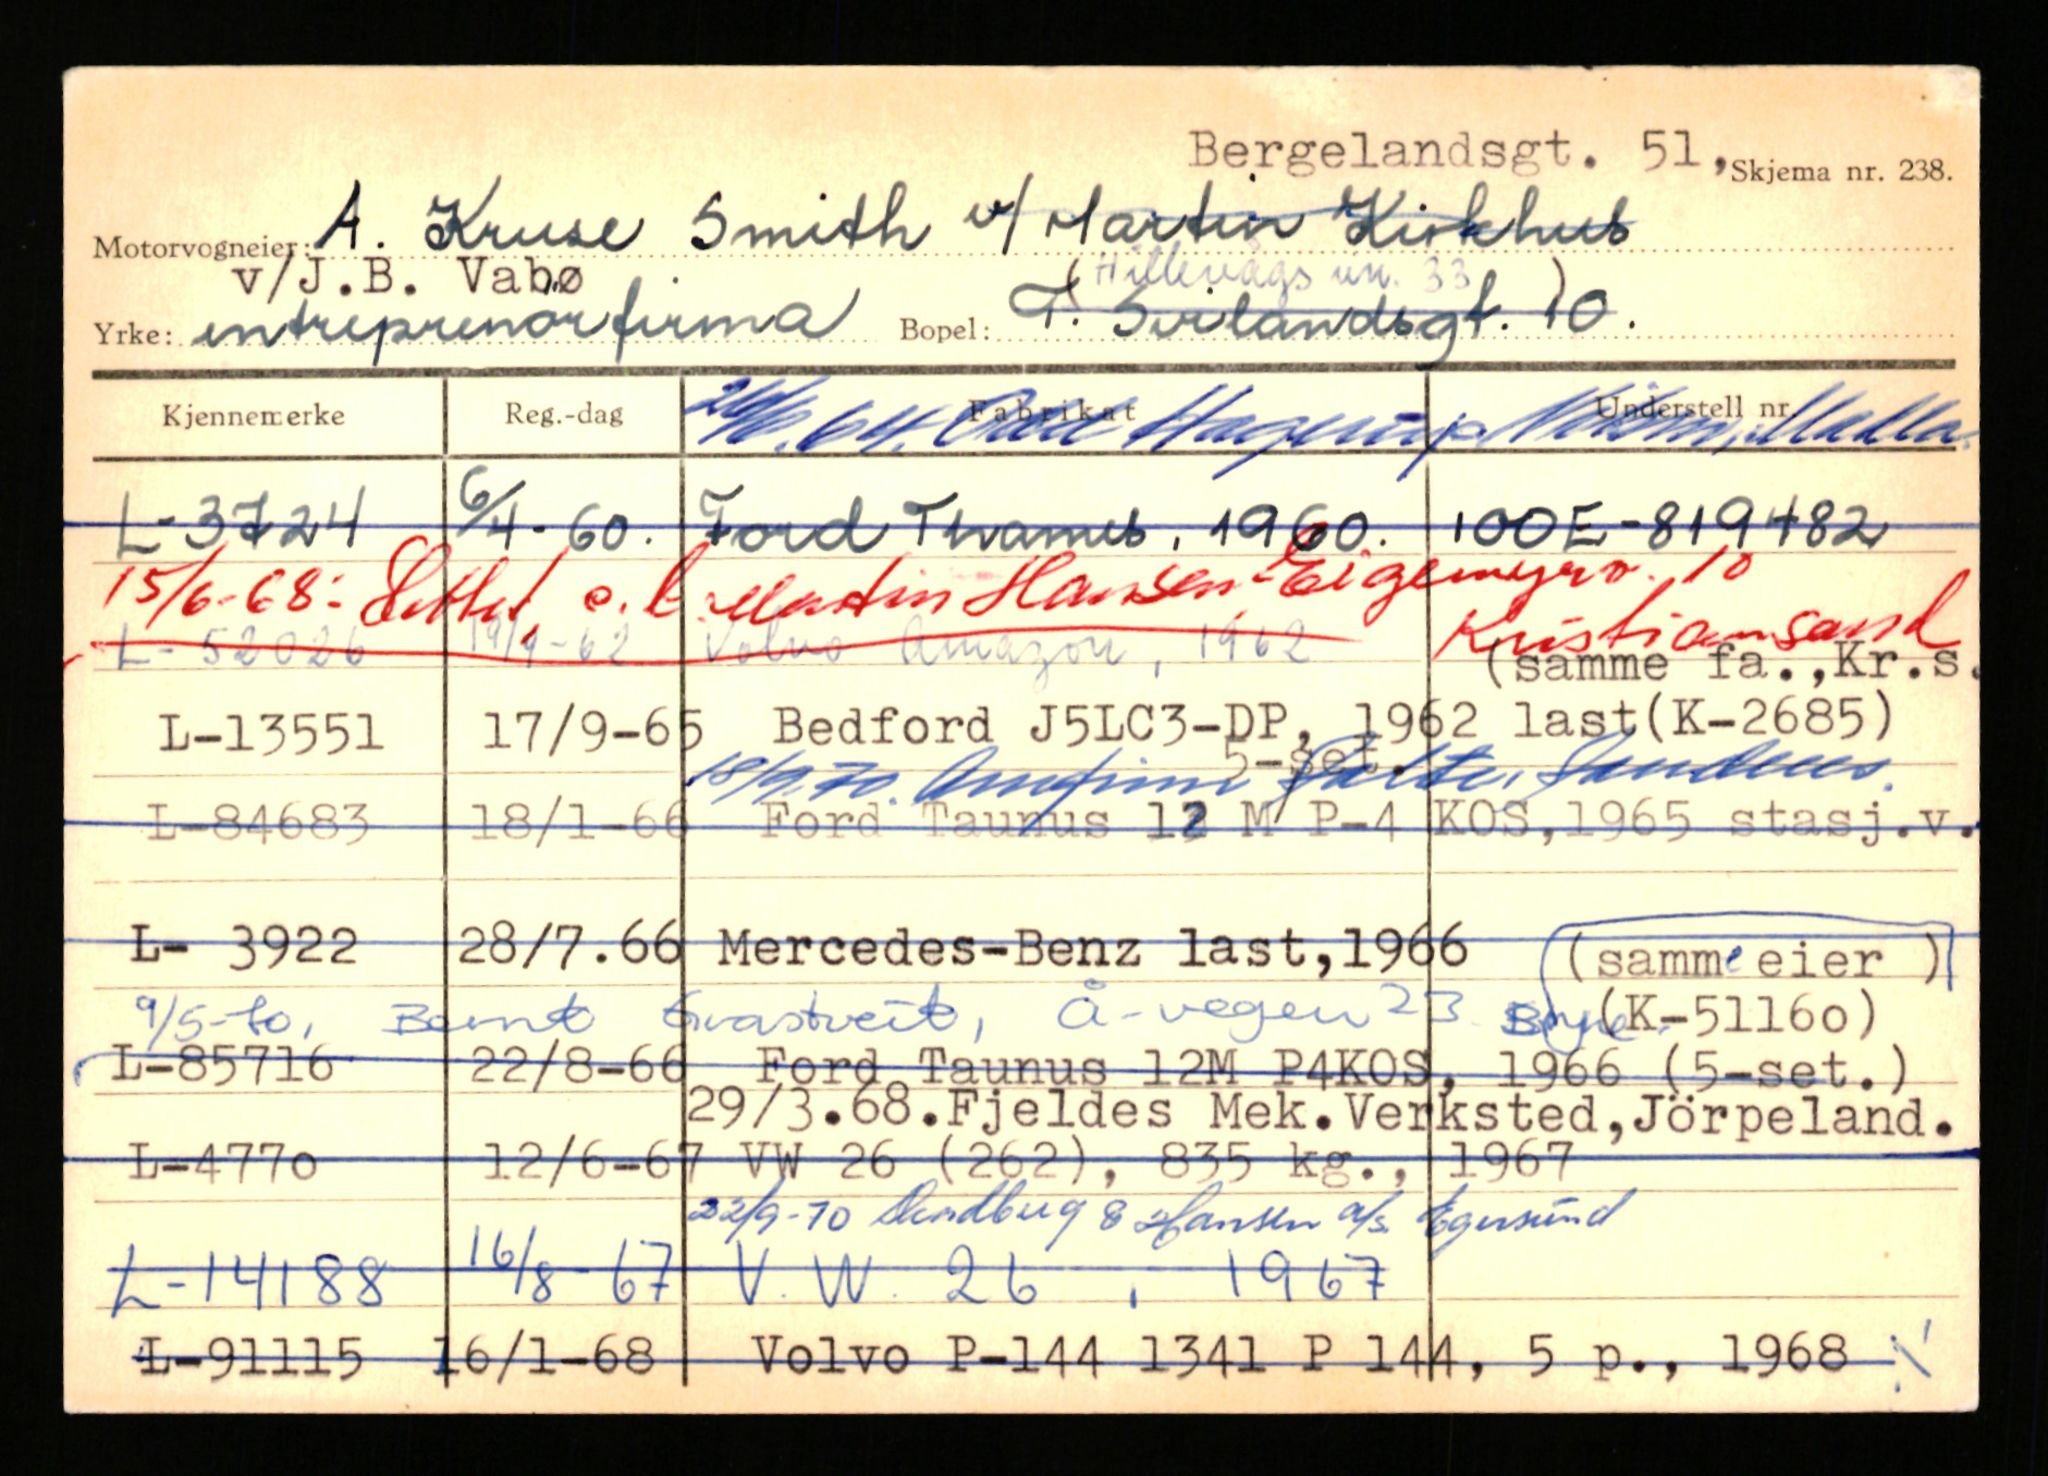 Bergelandsgt. 51, Skjema nr. 238.
Motorvogneier: A. Kruse Smith v/ Martin Kirkhus
v/J.B. Vabø (Hillevågsvn. 33)
Yrke: entreprenörfirma Bopel: T. Svilandsgt. 10.
Kjennemerke Reg.-dag Fabrikat Understell nr.
64. Odd Hagerup
L-3724 6/4-60. Ford Thames, 1960. 100E-819482
15/6-68: Slettet, o. t. Martin Hansen, Eigemyrv. 10
Kristiansand
L-52026 19/9-62 Volvo Amazon, 1962
(samme fa.,Kr.s.
L-13551 17/9-65 Bedford J5LC3-DP, 1962 last(K-2685)
5-set.
18/9.70. Arnfinn
L-84683 18/1-66 Ford Taunus 12 M P-4 KOS,1965 stasj.v.
L- 3922 28/7.66 Mercedes-Benz last,1966 (samme eier )
9/5-70, Bernt Kvastveit, Å-vegen 23 Bryne. (K-51160)
L-85716 22/8-66 Ford Taunus 12M P4KOS, 1966 (5-set.)
29/3.68.Fjeldes Mek.Verksted,Jörpeland.
L-4770 12/6-67 VW 26 (262), 835 kg., 1967
22/9-70 & Hansen a/s. Egersund
L-14188 16/8-67 V.W. 26, 1967
L-91115 16/1-68 Volvo P-144 1341 P 144, 5 p., 1968